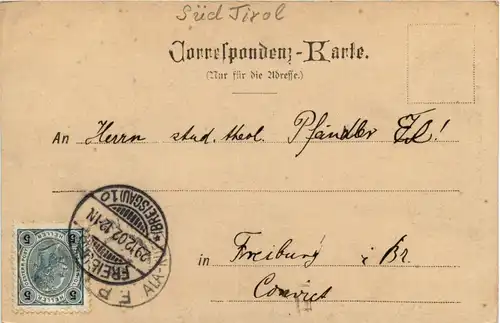 Süd Tirol
Correspondenz-Karte.
(Nur für die Adresse.)
An Herrn stud. theol. Pfändler
in Freiburg i Br.
Convict
(BREISGAU) 1 0
29.12.02.12-1N
FREIB
5 5
5 5